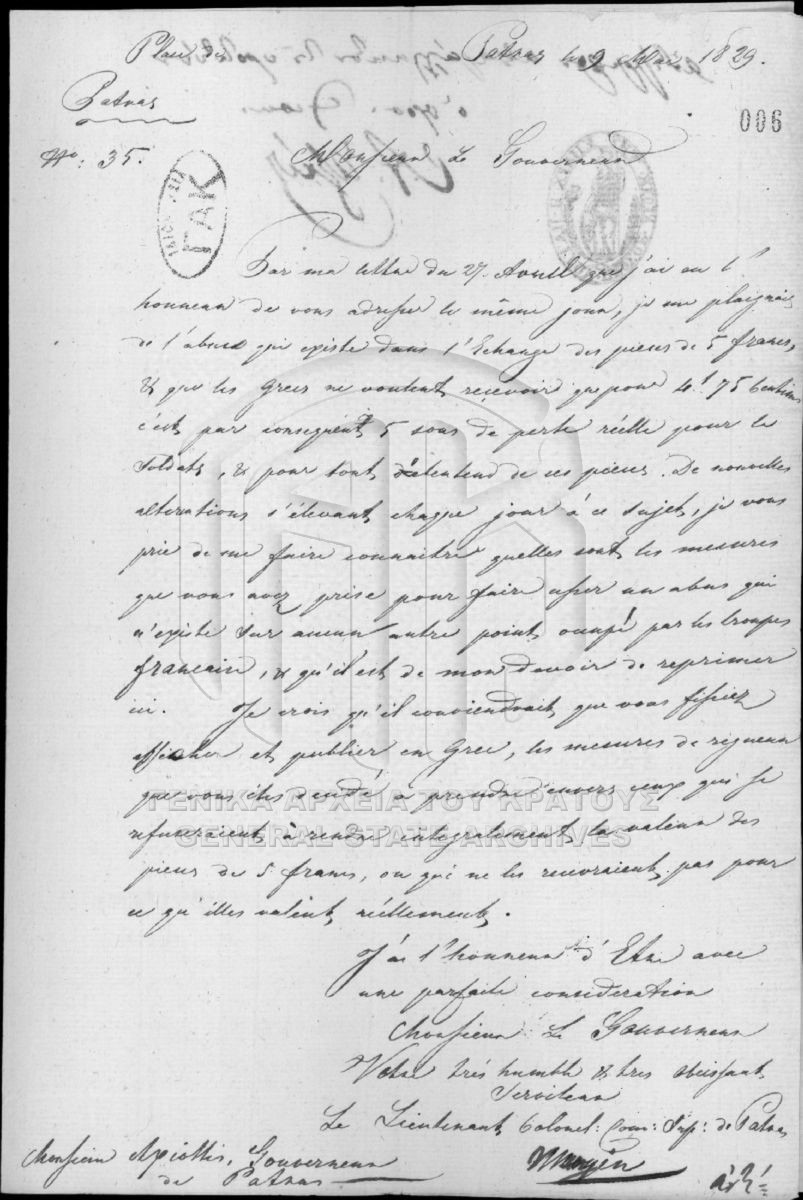 Place de Patras le 9 Mai 1829.
Patras
006
No: 35. Monsieur Le Gouverneur
ΓΑΚ
Par ma lettre du 27. Avrill que j'ai eu l'
honneur de vous adresser le même jour, je me plaignais
de l'abus qui existe dans l'Echange des pieces de 5 francs,
& que les Grecs ne voulent recevoir que pour 4f 75 Centimes
c'est par consequent 5 sous de perte réelle pour le
Soldats, & pour tout de ces pieces. De nouvelles
altercations s'élevant chaque jour à ce sujet, je vous
prie de me faire connaitre quelles sont les mesures
que vous avez prise pour faire cesser un abus qui
n'existe sur aucun autre point occupé par les troupes
francais, & qu'il est de mon devoir de reprimer
ici. Je crois qu'il conviendrait que vous fissiez
afficher et publier en Grec, les mesures de rigueur
que vous êtes à prendre envers ceux qui se
refuseraient à rendre integralement la valeur des
pieces de 5 francs, ou qui ne les recevraient pas pour
ce qu'elles valent réellement.
J'ai l'honneur d'Etre avec
une parfaite consideration
Monsieur Le Gouverneur
Votre trés humble & tres obeissant
Serviteur
Le Lieutenant Colonel: Com: Sup: de Patras
Monsieur Axiottis, Gouverneur
de Patras
ΓΕΝΙΚΑ ΑΡΧΕΙΑ ΤΟΥ ΚΡΑΤΟΥΣ
GENERAL STATE ARCHIVES